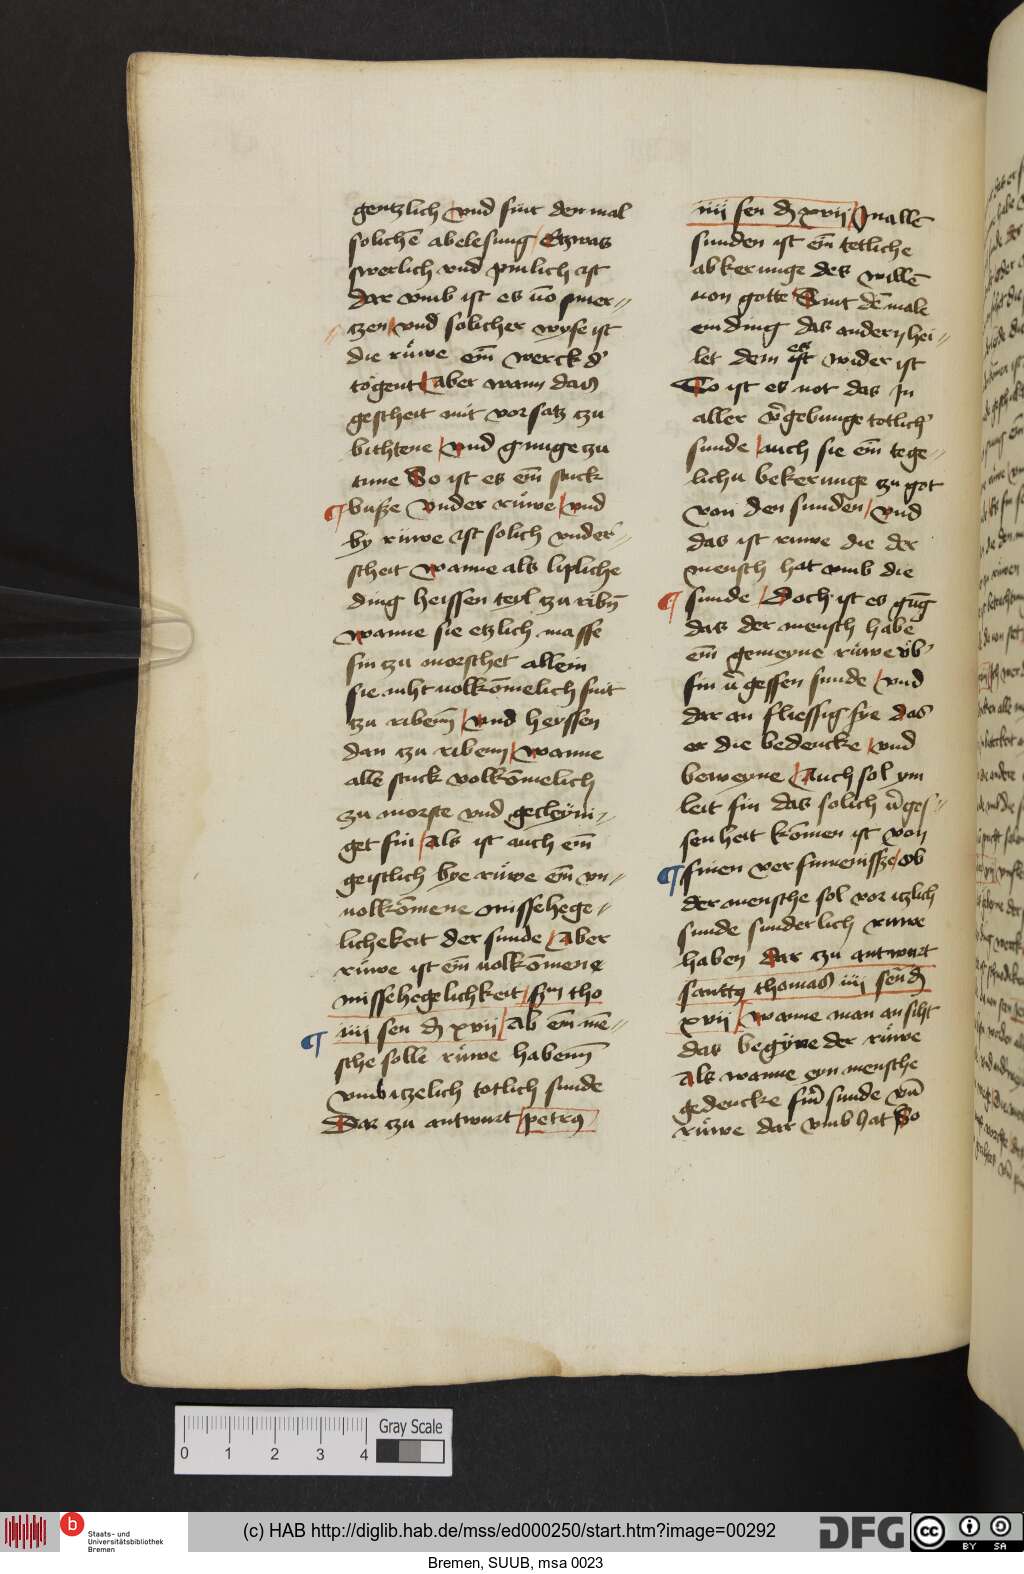 gentzlich vnd sint den mal
solichē abelesung Etzwas
swerlich vnd pinlich ist
dar vmb ist es no smer⸗
tzen vnd solicher wyse ist
die ruͤwe ein̄ werck d'
toͤgent Aber wann das
gescheit mit vorsatz czu
bichtene vnd gnuge zu
tune So ist es ein̄ stuck
¶ busze vnder ruͤwe vnd
by ruͤwe ist solich vnder⸗
scheit wanne als lipliche
ding heissen teyl zu ribn̄
wanne sie etzlich masse
sin czu morschet allein
sie niht uolkōmelich sint
tzu ribenn̄ vnd heyssen
dan czu ribenn wanne
alle stuck volkōmelich
zu morste vnd gecleyni⸗
get sin Als ist auch ein̄
geistlich bye ruͤwe ein̄ vn⸗
uolkōmene missehege⸗
lichekeit der sunde Aber
ruͤwe ist ein̄ uolkōmene
missehegelichkeit tho
¶ iiij sen d xvij Ab ein̄ mē⸗
sche solle ruͤwe habenn̄
vmb itzelich totlich sunde
Dar czu antwurt petrꝰ
iiij sen d xvij Jn allē
sunden ist ein̄ tetliche
abkerunge des willē
uon gotte Sint dē male
ein ding das andern hei⸗
let dem es ist wider ist
So ist es not das Jn
aller v̄gebunge totlich'
sunde auch sie ein̄ tege⸗
lichn bekerunge zu got
von den sunden vnd
das ist ruwe die der
mensch hat vmb die
¶ sunde Doch ist es gnūg
das der mensch habe
ein̄ gemeyne ruͤwe uͤb'
sin v̄gessen sunde vnd
dar an fliessig sye das
er die bedencke vnd
beweyne Auch sol ym
leit sin das solich v̄ges⸗
senheit kōmen ist von
¶ sinen versumenisze ob
der mensche sol vor iczlich
sunde sunderlich ruwe
haben dar zu antwurt
santtꝰ thomas iiij sen̄ d
xvij wanne man ansiht
das begyne der ruͤwe
Als wanne eyn mensche
gedencke sinr̄ sunde vn̄
ruͤwe dar vmb hat So
0 1 2 3 4
Gray Scale
b
Staats- und
Universitätsbibliothek
Bremen
(c) HAB http://diglib.hab.de/mss/ed000250/start.htm?image=00292
DFG
cc
BY SA
Bremen, SUUB, msa 0023